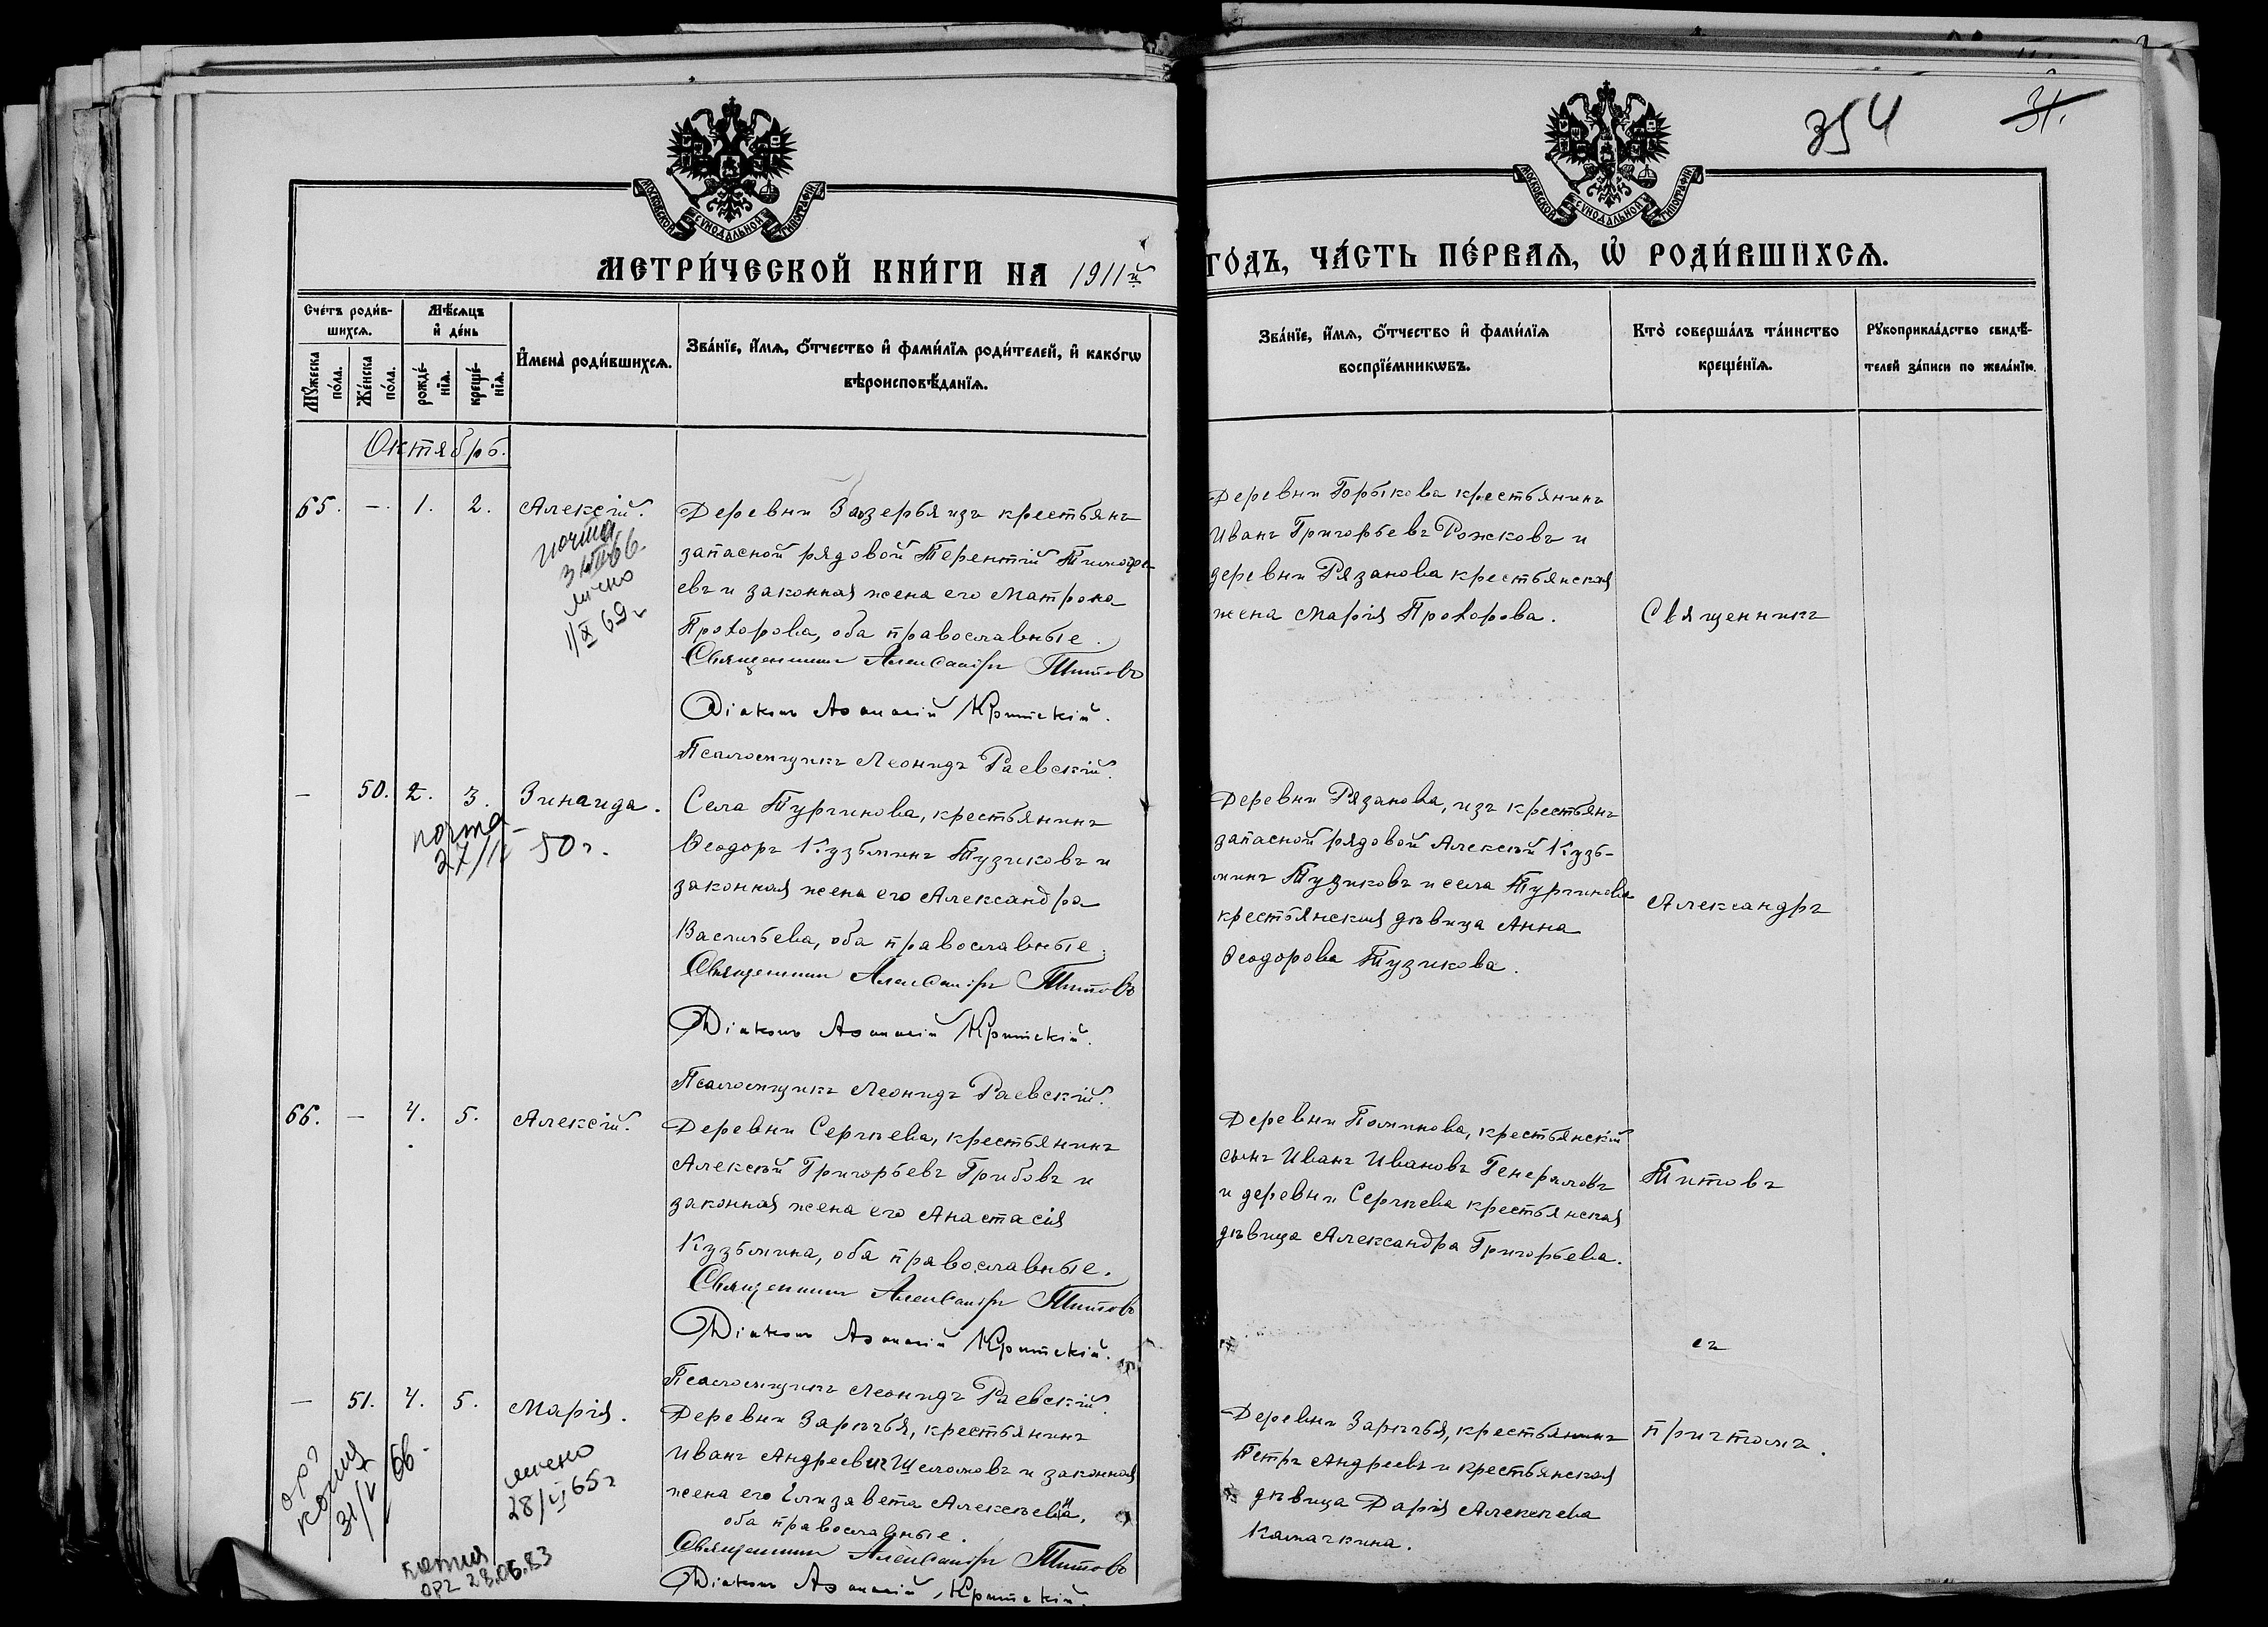 354
31.
МОСКОВСКОЙ СѴНОДАЛЬНОЙ ТИПОГРАФІИ
МОСКОВСКОЙ СѴНОДАЛЬНОЙ ТИПОГРАФІИ
МЕТРИ́ЧЕСКОЙ КНИ́ГИ НА 1911й
ГО́ДЪ, ЧА́СТЬ ПЕ́РВАѦ, Ѽ РОДИ́ВШИХСѦ.
Сче́тъ роди́в-
шихсѧ.
Мꙋ́жеска
по́ла.
Же́нска
по́ла.
Мѣ́сѧцъ
и҆ де́нь
рожде́-
нїѧ.
креще́-
нїѧ.
И҆мена̀ роди́вшихсѧ.
Зва́нїе, и҆́мѧ, ѻ҆́тчество и҆ фами́лїѧ роди́телей, и҆ како́гѡ
вѣроисповѣ́данїѧ.
Зва́нїе, и҆́мѧ, ѻ҆́тчество и҆ фами́лїѧ
воспрїе́мникѡвъ.
Кто̀ соверша́лъ та́инство
креще́нїѧ.
Рꙋкоприкла́дство свидѣ́-
телей за́писи по жела́нїю.
Октябрь.
65. -. 1. 2. Алексій.
почта
лично
1/X 69г
Деревни Заозерья изъ крестьянъ
запасной рядовой Терентій Тимофе-
евъ и законная жена его Матрона
Прохорова, оба православные.
Священникъ Александръ Титовъ
Діаконъ Аѳанасій Критскій.
Псаломщикъ Леонидъ Раевскій.
Деревни Горыкова крестьянинъ
Иванъ Григорьевъ Рожковъ и
деревни Рязанова крестьянская
жена Марія Прохорова.
Священникъ
- 50. 2. 3. Зинаида.
почта
50г.
Села Тургинова, крестьянинъ
Ѳеодоръ Кузьминъ Тузиковъ и
законная жена его Александра
Васильева, оба православные.
Священникъ Александръ Титовъ
Діаконъ Аѳанасій Критскій.
Псаломщикъ Леонидъ Раевскій.
Деревни Рязанова, изъ крестьянъ
запасной рядовой Алексѣй Кузь-
минъ Тузиковъ и села Тургинова
крестьянская дѣвица Анна
Ѳеодорова Тузикова.
Александръ
66. - 4. 5. Алексій.
Деревни Сергѣева, крестьянинъ
Алексѣй Григорьевъ Грибовъ и
законная жена его Анастасія
Кузьмина, оба православные.
Священникъ Александръ Титовъ
Діаконъ Аѳанасій Критскій.
Псаломщикъ Леонидъ Раевскій.
Деревни Поминова, крестьянскій
сынъ Иванъ Ивановъ Генераловъ
и деревни Сергѣева крестьянская
дѣвица Александра Григорьева.
Титовъ
съ
- 51. 4. 5. Марія.
орг
копия
31/V 66-
лично
28/VI 65г
копия
орг 28.06.83
Деревни Зарѣчья, крестьянинъ
Иванъ Андреевъ Шеломовъ и законная
жена его Елизавета Алексѣева,
оба православные.
Священникъ Александръ Титовъ
Діаконъ Аѳанасій Критскій.
Деревни Зарѣчья, крестьянинъ
Петръ Андреевъ и крестьянская
дѣвица Дарія Алексѣева
Камачкина.
причтомъ.